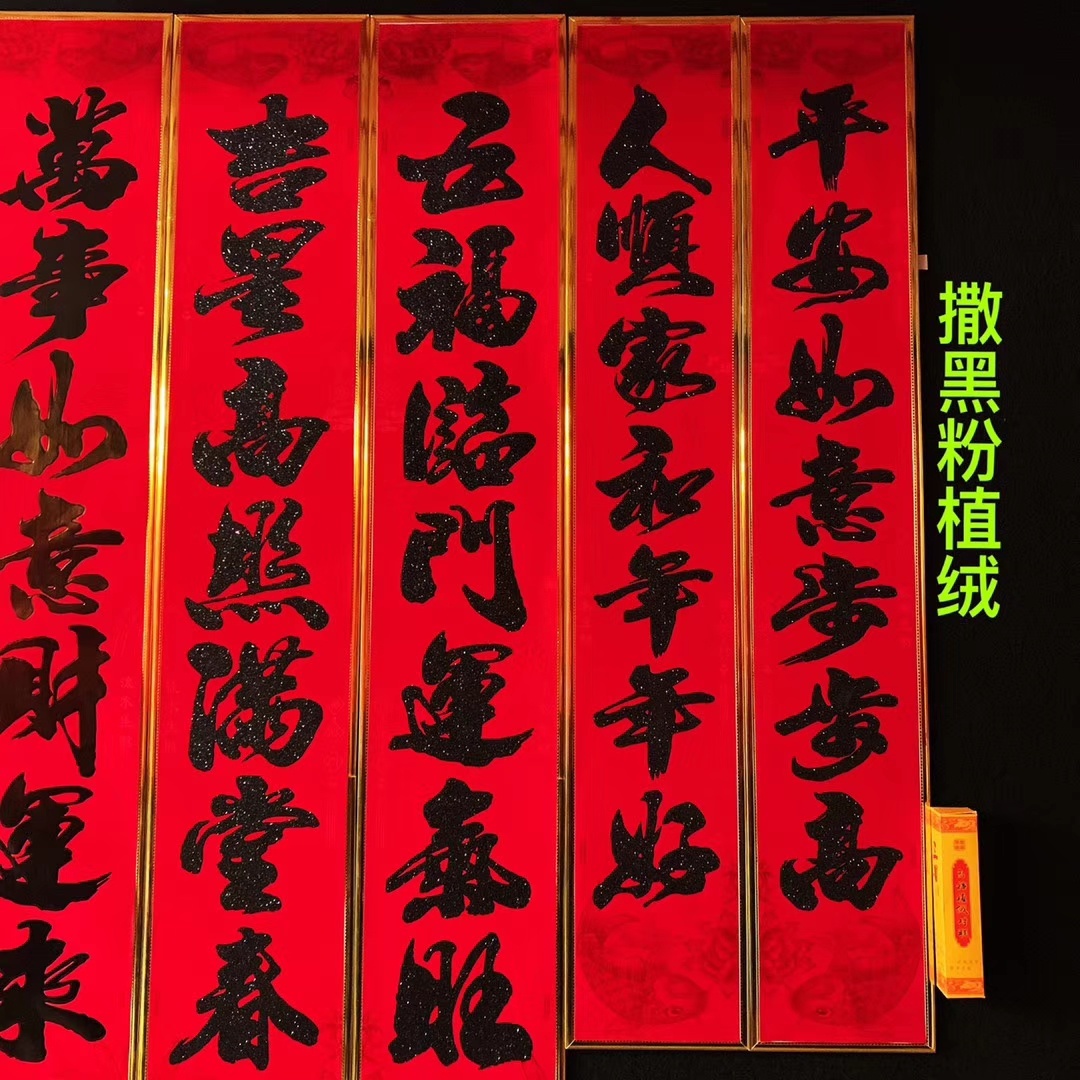 撒黑粉植绒
平安如意步步高
人順家和年年好
五福臨門運氣旺
吉星高照满堂春
萬事如意財運来